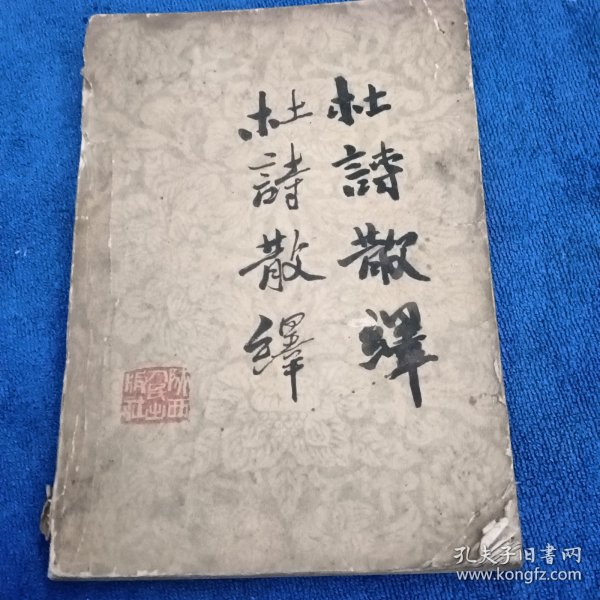 杜詩散繹
杜詩散繹
陕西
人民出
版社
孔夫子旧書网
www.kongfz.com